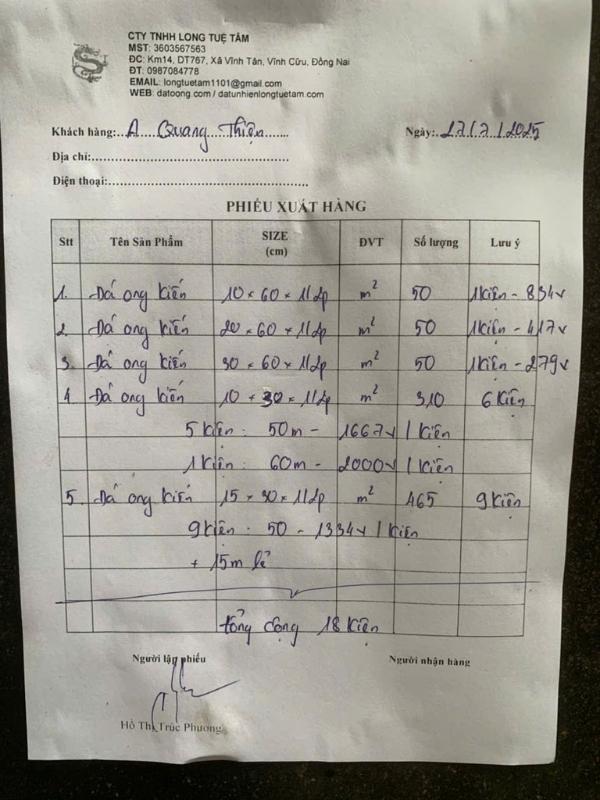 CTY TNHH LONG TUỆ TÂM
MST: 3603567563
ĐC: Km14, DT767, Xã Vĩnh Tân, Vĩnh Cửu, Đồng Nai
ĐT: 0987084778
EMAIL: longtuetam1101@gmail.com
WEB: datoong.com / datunhienlongtuetam.com
Khách hàng: A Quang Thiện Ngày: 27/7/2025
Địa chỉ:
Điện thoại:
PHIẾU XUẤT HÀNG
Stt Tên Sản Phẩm SIZE (cm) ĐVT Số lượng Lưu ý
1. Đá ong kiến 10 x 60 x 1,2p m² 50 1 kiện - 834v
2. Đá ong kiến 20 x 60 x 1,2p m² 50 1 kiện - 417v
3. Đá ong kiến 30 x 60 x 1,2p m² 50 1 kiện - 279v
4 Đá ong kiến 10 x 30 x 1,2p m² 310 6 kiện
5 kiện: 50m - 1667v / kiện
1 kiện: 60m - 2000v / kiện
5. Đá ong kiến 15 x 30 x 1,2p m² 465 9 kiện
9 kiện: 50 - 1334v / kiện
+ 15m lẻ
tổng cộng 18 kiện
Người lập phiếu Người nhận hàng
Hồ Thị Trúc Phương